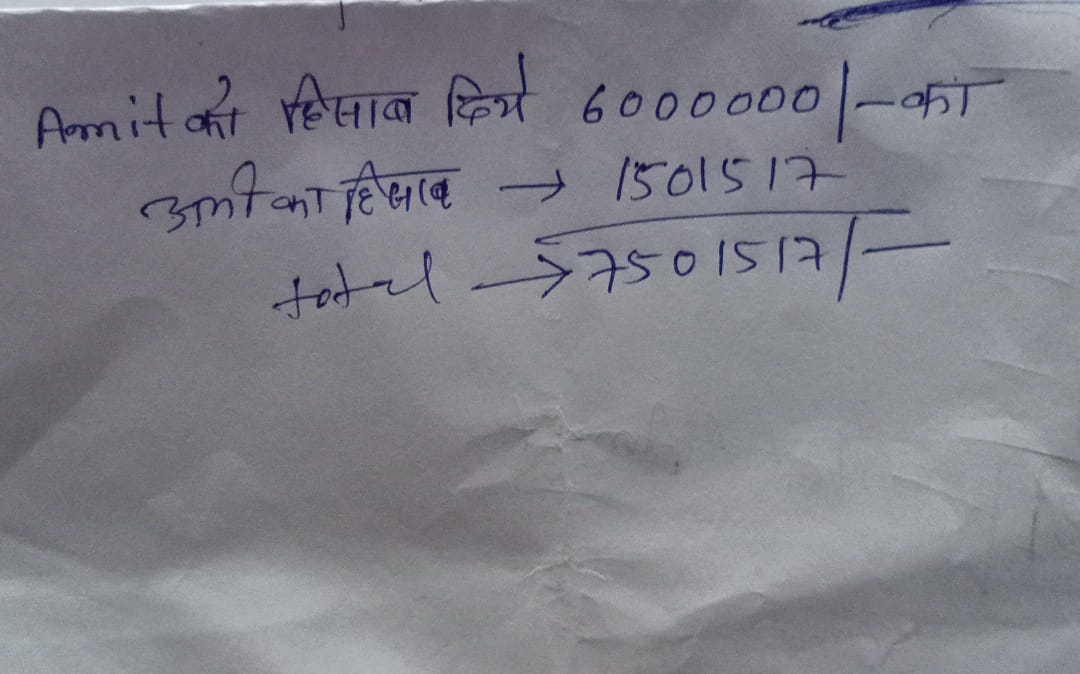 Amit को हिसाब दिये 6000000/- का
का हिसाब → 1501517
total → 7501517/-